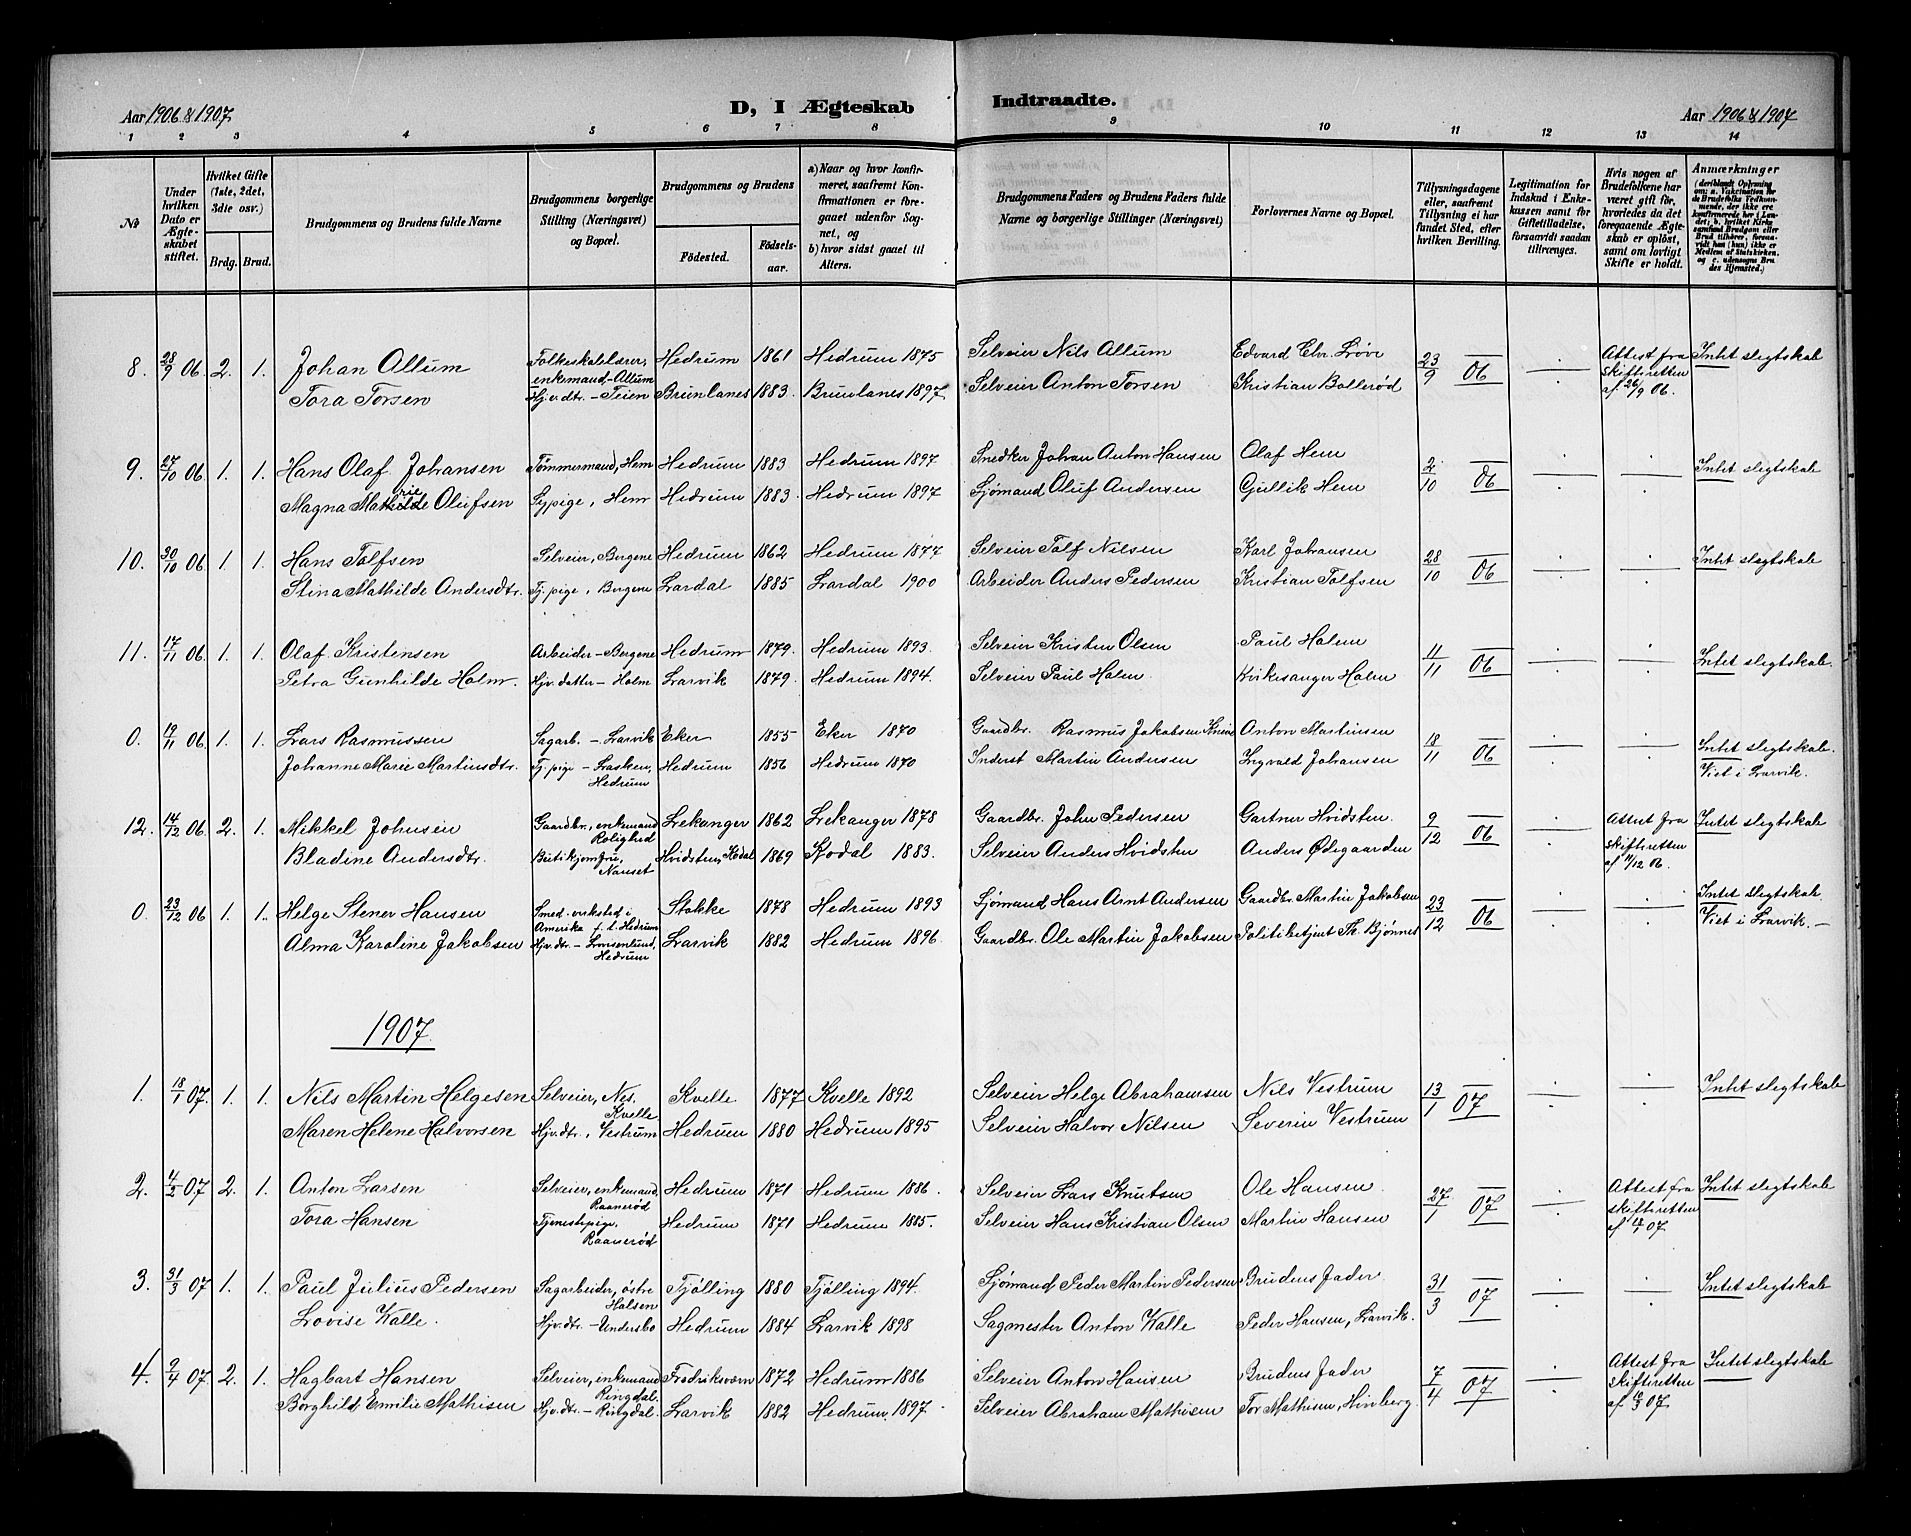 Aar 1906 & 1907
D, I Ægteskab Indtraadte.
Aar 1906 & 1907
1 2 3 4 5 6 7 8 9 10 11 12 13 14
No
Under hvilken Dato er Ægteskabet stiftet.
Hvilket Gifte (1ste, 2det, 3die osv.)
Brdg. Brud.
Brudgommens og Brudens fulde Navne
Brudgommens borgerlige Stilling (Næringsvei) og Bopæl.
Brudgommens og Brudens
Födested. Födselsaar.
a) Naar og hvor konfirmeret, saafremt Konfirmationen er foregaaet udenfor Sognet, og
b) hvor sidst gaaet til Alters.
Brudgommens Faders og Brudens Faders fulde Navne og borgerlige Stillinger (Næringsvei)
Forlovernes Navne og Bopæl.
Tillysningsdagene eller, saafremt Tillysning ei har fundet Sted, efter hvilken Bevilling.
Legitimation for Indskud i Enkekassen samt for Giftetilladelse, forsaavidt saadan tiltrænges.
Hvis nogen af Brudefolkene har været gift för, hvorledes da det foregaaende Ægteskab er oplöst, samt om lovligt Skifte er holdt.
Anmærkninger
(deriblandt Oplysning om: a. Vaccination for de Brudefolks Vedkommende, der ikke ere konfirmerede her i Landet; b. hvilket Kirkesamfund Brudgom eller Brud tilhører, forsaavidt han (hun) ikke er Medlem af Statskirken, og c. udensogns Brudes Hjemsted.)
8. 28/9 06 2. 1. Johan Allum Folkeskolelærer, enkemand - Allum Hedrum 1861 Hedrum 1875 Selveier Nils Allum Edvard Chr. Løve 23/9 06 Attest fra skifteretten af 26/9 06. Intet slegtskab
Tora Torsen Hjv. dtr. - Teien Brunlanes 1883. Brunlanes 1897. Selveier Anton Torsen Kristian Bollerød
9. 27/10 06 1. 1. Hans Olaf Johansen Tømmermand, Hem Hedrum 1883 Hedrum 1897 Snedker Johan Anton Hansen Olaf Hem 2/10 06 Intet slegtskab
Magna Mathilde Olufsen Sypige, Hem Hedrum 1883. Hedrum 1897 Sjømand Oluf Andersen Gullik Hem
10. 30/10 06 1. 1. Hans Tolfsen Selveier, Bergene Hedrum 1862 Hedrum 1877 Selveier Tolf Nilsen Karl Johansen 28/10 06 Intet slegtskab
Stina Mathilde Andersdtr. Tj. pige, Bergene Lardal 1885 Lardal 1900 Arbeider Anders Pedersen Kristian Tolfsen
11. 17/11 06 1. 1. Olaf Kristensen Arbeider - Bergene Hedrum 1879. Hedrum 1893. Selveier Kristen Olsen Paul Holm 11/11 06 Intet slegtskab.
Petra Gunhilde Holm. Hjv. datter - Holm Larvik 1879. Hedrum 1894. Selveier Paul Holm Kirkesanger Holm
0. 19/11 06 1. 1. Lars Rasmussen Sagarb. - Larvik Eker 1855 Eker 1870 Gaardbr. Rasmus Jakobsen Anton Martinsen 18/11 06 Intet slegtskab.
Johanne Marie Martinsdtr. Tj. pige - Lasken, Hedrum Hedrum 1856 Hedrum 1870 Inderst Martin Andersen Ingvald Johansen Viet i Larvik.
12. 14/12 06 2. 1. Mikkel Johnsen Gaardbr., enkemand Rolighed Lekanger 1862 Lekanger 1878 Gaardbr. John Pedersen Gartner Hvidsten 9/12 06 Attest fra skifteretten af 11/12 06. Intet slegtskab
Bladine Andersdtr. Butikjomfru, Nanset Hvidsten, Kodal 1869 Kodal 1883. Selveier Anders Hvidsten Anders Ødegaarden
0. 23/12 06 1. 1. Helge Stener Hansen Smed - virksted i Amerika f. t. Hedrum Stokke 1878 Hedrum 1893 Sjømand Hans Arnt Andersen Gaardbr. Martin Jakobsen 23/12 06 Intet slegtskab.
Alma Karoline Jakobsen Hjv. dtr. - Lovisenlund, Hedrum Larvik 1882 Hedrum 1896. Gaardbr. Ole Martin Jakobsen Politibetjent Th. Bjønnes Viet i Larvik. -
1907.
1. 18/1 07. 1. 1. Nils Martin Helgesen Selveier, Nes. Kvelle Kvelle 1877 Kvelle 1892 Selveier Helge Abrahamsen Nils Vestrum 13/1 07 Intet slegtskab
Maren Helene Halvorsen Hjv. dtr., Vestrum Hedrum 1880 Hedrum 1895 Selveier Halvor Nilsen Severin Vestrum
2. 4/2 07 2. 1. Anton Larsen Selveier, enkemand, Raanerød Hedrum 1871 Hedrum 1886. Selveier Lars Knutsen Ole Hansen 27./1 07 Attest fra skifteretten af 07 Intet slegtskab
Tora Hansen Tjenestepige, Raanerød Hedrum 1871 Hedrum 1885. Selveier Hans Kristian Olsen Martin Hansen
3. 31/3 07 1. 1. Paul Julius Pedersen Sagarbeider, østre Halsen Tjølling 1880 Tjølling 1894. Sjømand Peder Martin Pedersen Brudens fader. 31/3 07 Intet slegtskab
Lovise Kalle. Hjv. dtr. - Undersbo Hedrum 1884 Larvik 1898 Sagmester Anton Kalle Peder Hansen, Larvik.
4. 9/4 07 2. 1. Hagbart Hansen Selveier, enkemand Ringdal, Fredriksværn 1872 Hedrum 1886 Selveier Anton Hansen Brudens fader 7/4 07 Attest fra skifteretten af 07 Intet slegtskab
Borghild Emilie Mathisen Hjv. dtr. - Ringdal. Larvik 1882 Hedrum 1897. Selveier Abraham Mathisen Tor Mathisen, Hvoberg.